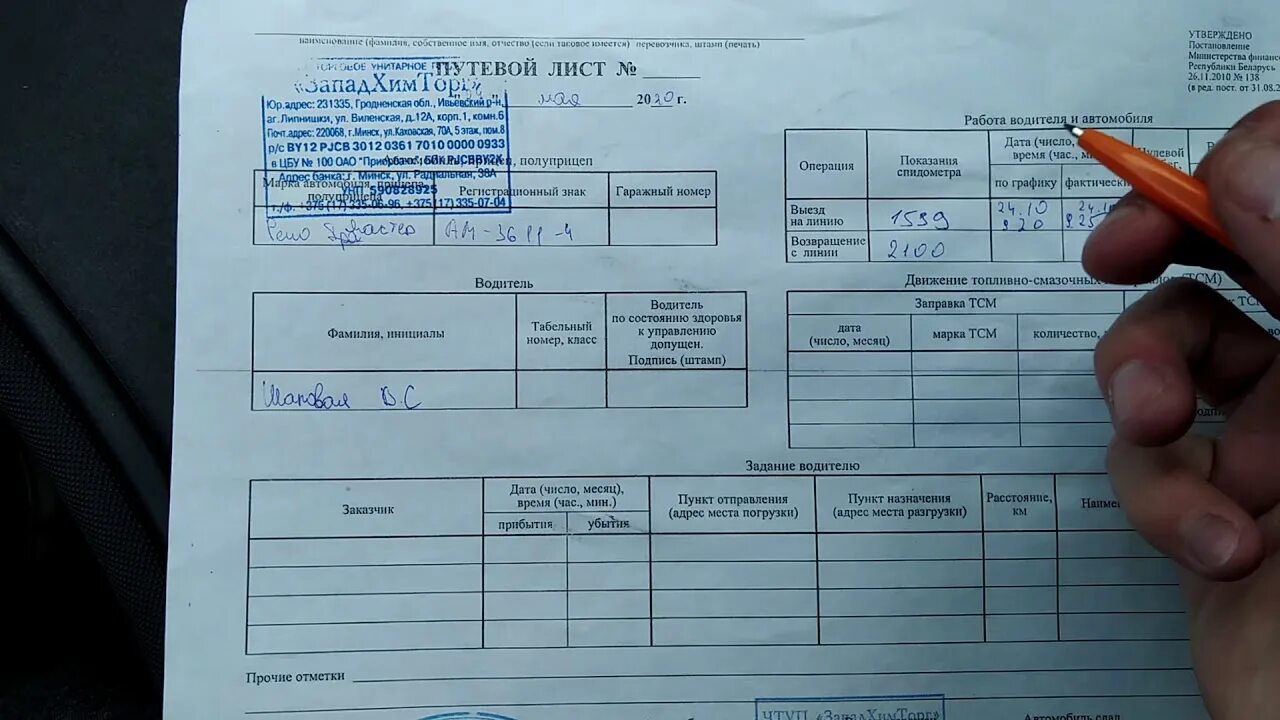 наименование (фамилия, собственное имя, отчество (если таковое имеется) перевозчика, штамп (печать)
УТВЕРЖДЕНО
Постановление
Министерства финансо
Республики Беларусь
26.11.2010 № 138
(в ред. пост. от 31.08.2
ТОРГОВОЕ УНИТАРНОЕ
ПУТЕВОЙ ЛИСТ №
«ЗападХимТорг»
мая 2020 г.
Юр.адрес: 231335, Гродненская обл., Ивьевский р-н,
аг.Липнишки, ул. Виленская, д.12А, корп.1, комн.6
Почт.адрес: 220068, г.Минск, ул.Каховская, 70А, 5 этаж, пом.8
р/с BY12 PJCB 3012 0361 7010 0000 0933
в ЦБУ № 100 ОАО "Приорбанк" БИК PJCBBY2X
Адрес банка: г. Минск, ул. Радиальная, 38А
УНП 590828925
т./ф. +375 (17) 335-06-96, +375 (17) 335-07-04
прицеп, полуприцеп
Марка автомобиля, прицепа, полуприцепа
Регистрационный знак
Гаражный номер
Рено
АМ-3611-4
Работа водителя и автомобиля
Операция
Показания спидометра
Дата (число,
время (час., ми
по графику
фактически
Нулевой
Выезд на линию
1539
24.10
9 20
24.10
9 25
Возвращение с линии
2100
Водитель
Фамилия, инициалы
Табельный номер, класс
Водитель по состоянию здоровья к управлению допущен.
Подпись (штамп)
Шаповал В.С
Движение топливно-смазочных (ТСМ)
Заправка ТСМ
ТСМ
дата (число, месяц)
марка ТСМ
количество,
Задание водителю
Заказчик
Дата (число, месяц), время (час., мин.)
прибытия
убытия
Пункт отправления (адрес места погрузки)
Пункт назначения (адрес места разгрузки)
Расстояние, км
Наимен
Прочие отметки
ЧТУП «ЗападХимТорг»
Автомобиль сдал